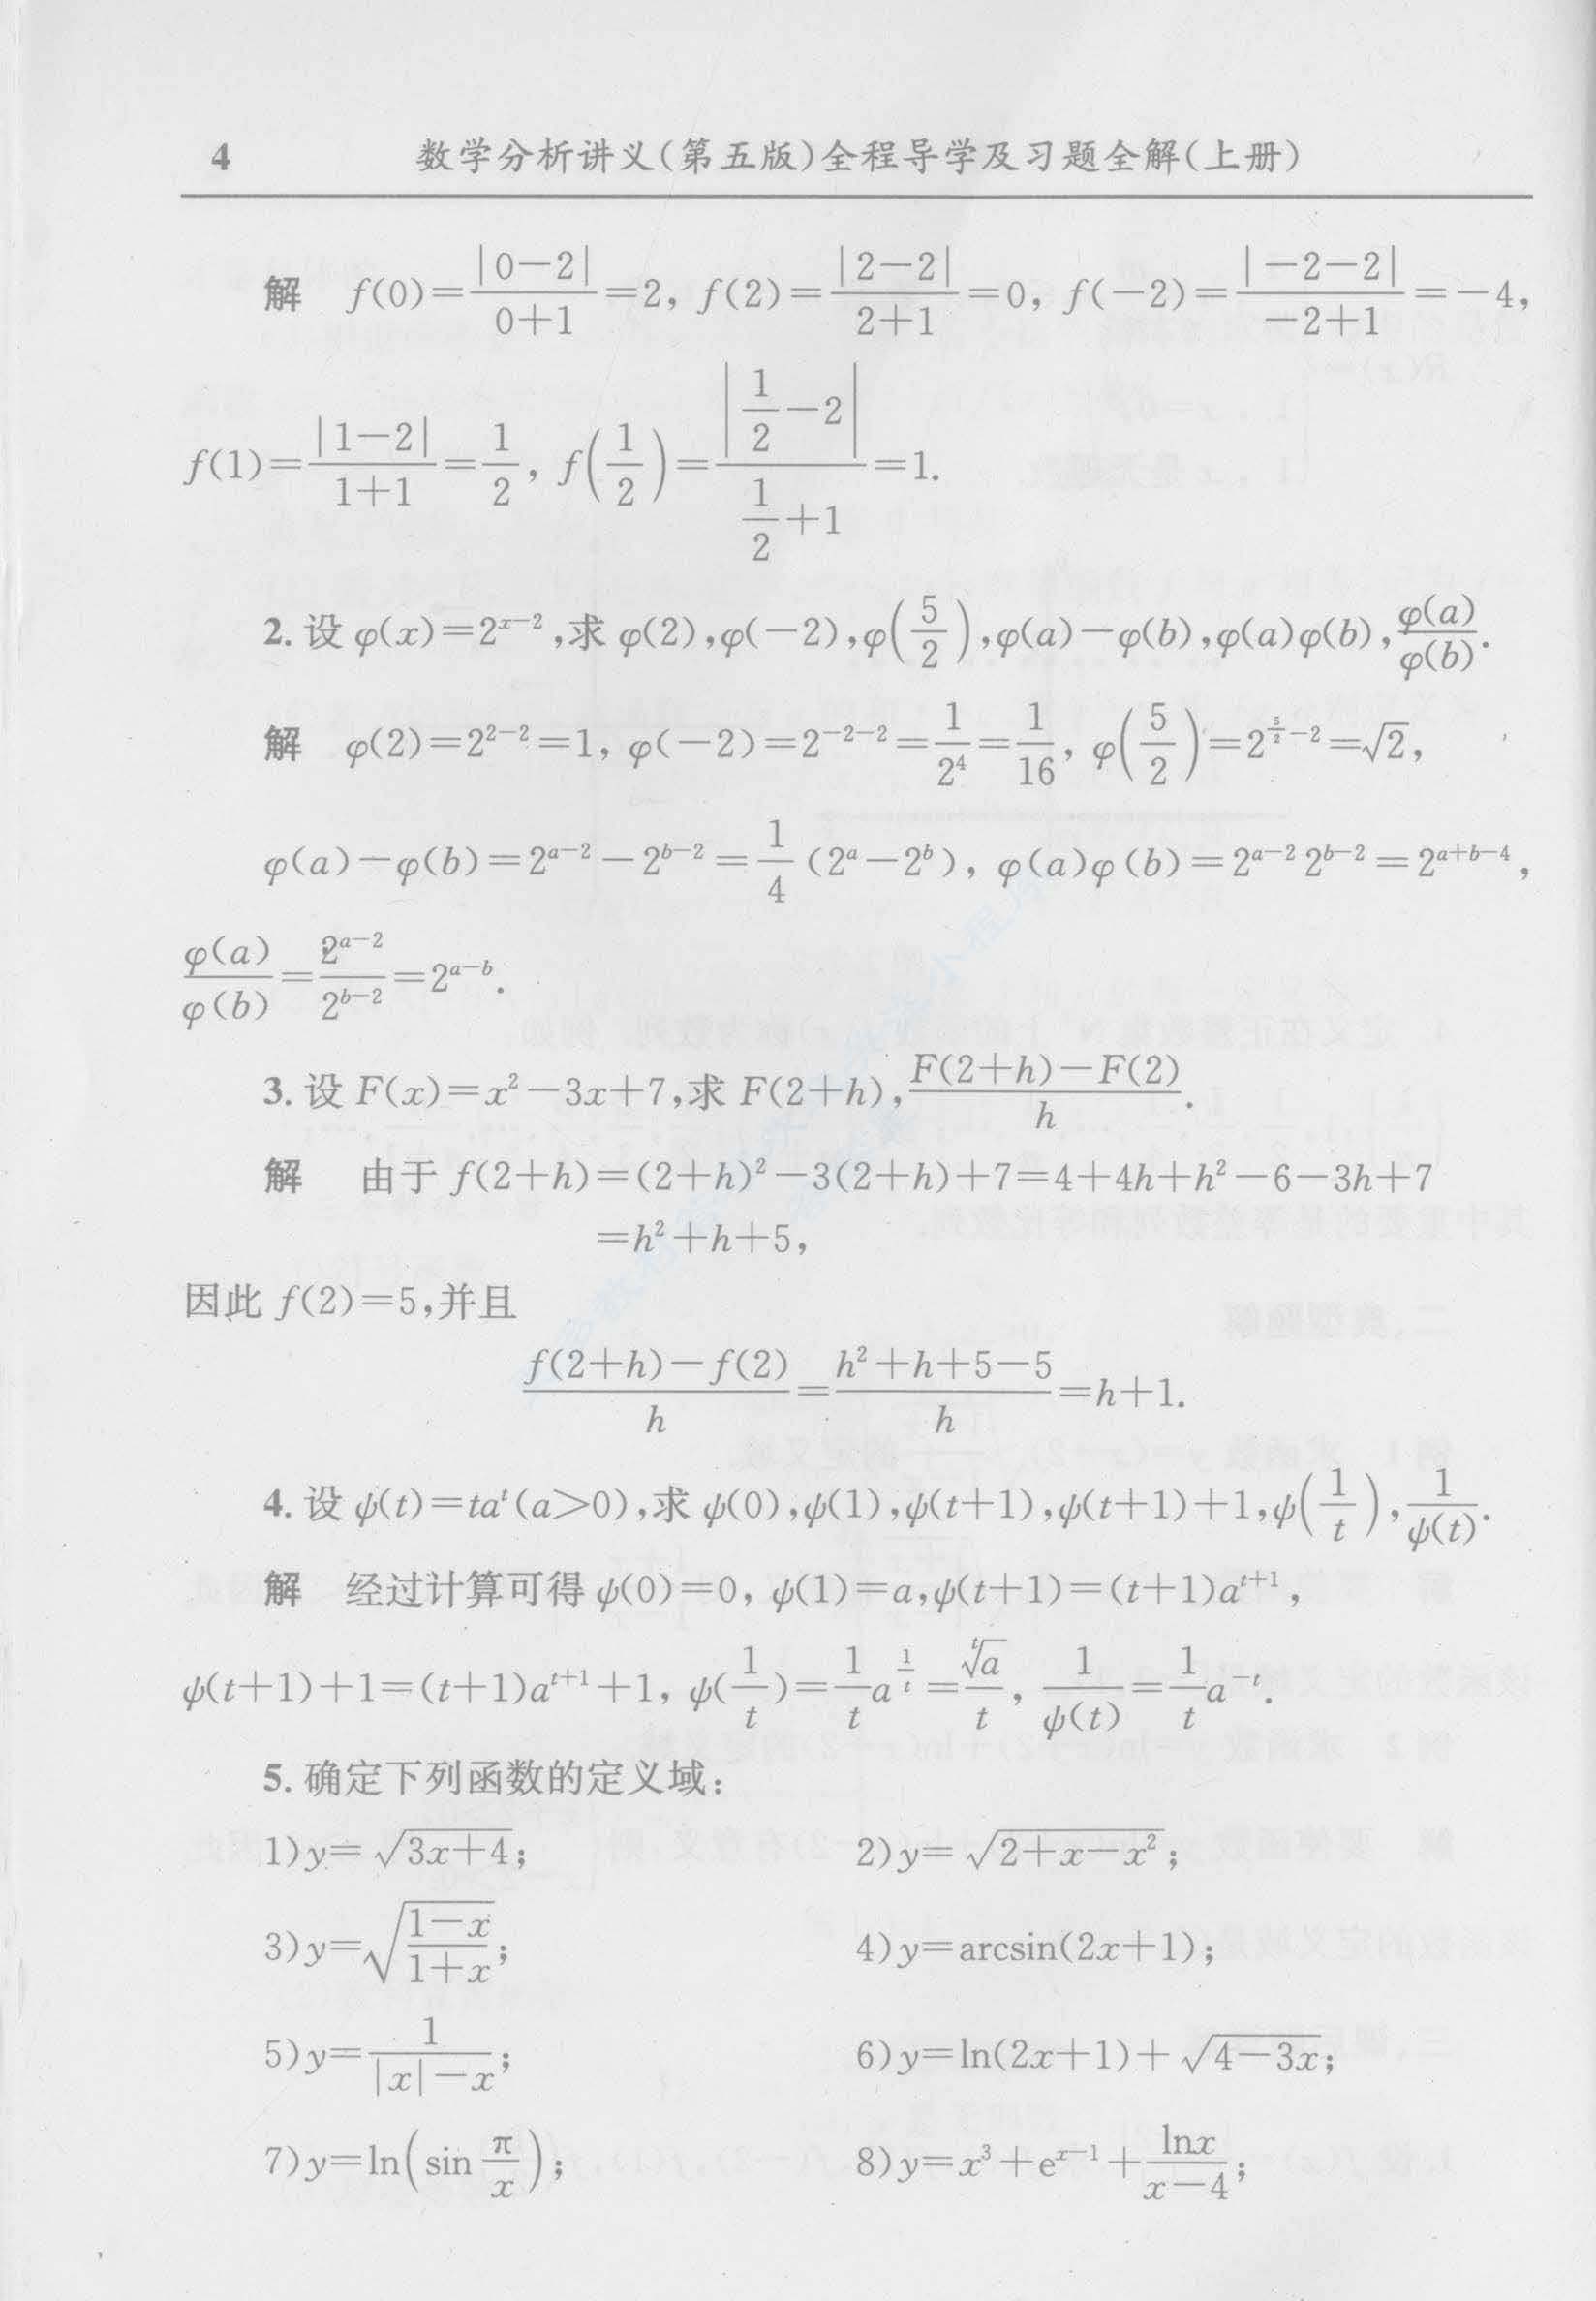 4 数学分析讲义(第五版)全程导学及习题全解(上册)
解 f(0)=|0-2|/(0+1)=2, f(2)=|2-2|/(2+1)=0, f(-2)=|-2-2|/(-2+1)=-4,
f(1)=|1-2|/(1+1)=1/2, f(1/2)=|1/2-2|/(1/2+1)=1.
2. 设 φ(x)=2^{x-2},求 φ(2),φ(-2),φ(5/2),φ(a)-φ(b),φ(a)φ(b),φ(a)/φ(b).
解 φ(2)=2^{2-2}=1, φ(-2)=2^{-2-2}=1/2^4=1/16, φ(5/2)=2^{5/2-2}=√2,
φ(a)-φ(b)=2^{a-2}-2^{b-2}=1/4(2^a-2^b), φ(a)φ(b)=2^{a-2}2^{b-2}=2^{a+b-4},
φ(a)/φ(b)=2^{a-2}/2^{b-2}=2^{a-b}.
3. 设 F(x)=x²-3x+7,求 F(2+h),(F(2+h)-F(2))/h.
解 由于 f(2+h)=(2+h)²-3(2+h)+7=4+4h+h²-6-3h+7
=h²+h+5,
因此 f(2)=5,并且
(f(2+h)-f(2))/h=(h²+h+5-5)/h=h+1.
4. 设 ψ(t)=ta^t(a>0),求 ψ(0),ψ(1),ψ(t+1),ψ(t+1)+1,ψ(1/t),1/ψ(t).
解 经过计算可得 ψ(0)=0, ψ(1)=a,ψ(t+1)=(t+1)a^{t+1},
ψ(t+1)+1=(t+1)a^{t+1}+1, ψ(1/t)=1/t a^{1/t}=\sqrt[t]{a}/t, 1/ψ(t)=1/t a^{-t}.
5. 确定下列函数的定义域:
1)y=√(3x+4); 2)y=√(2+x-x²);
3)y=√((1-x)/(1+x)); 4)y=arcsin(2x+1);
5)y=1/(|x|-x); 6)y=ln(2x+1)+√(4-3x);
7)y=ln(sin π/x); 8)y=x³+e^{x-1}+lnx/(x-4);